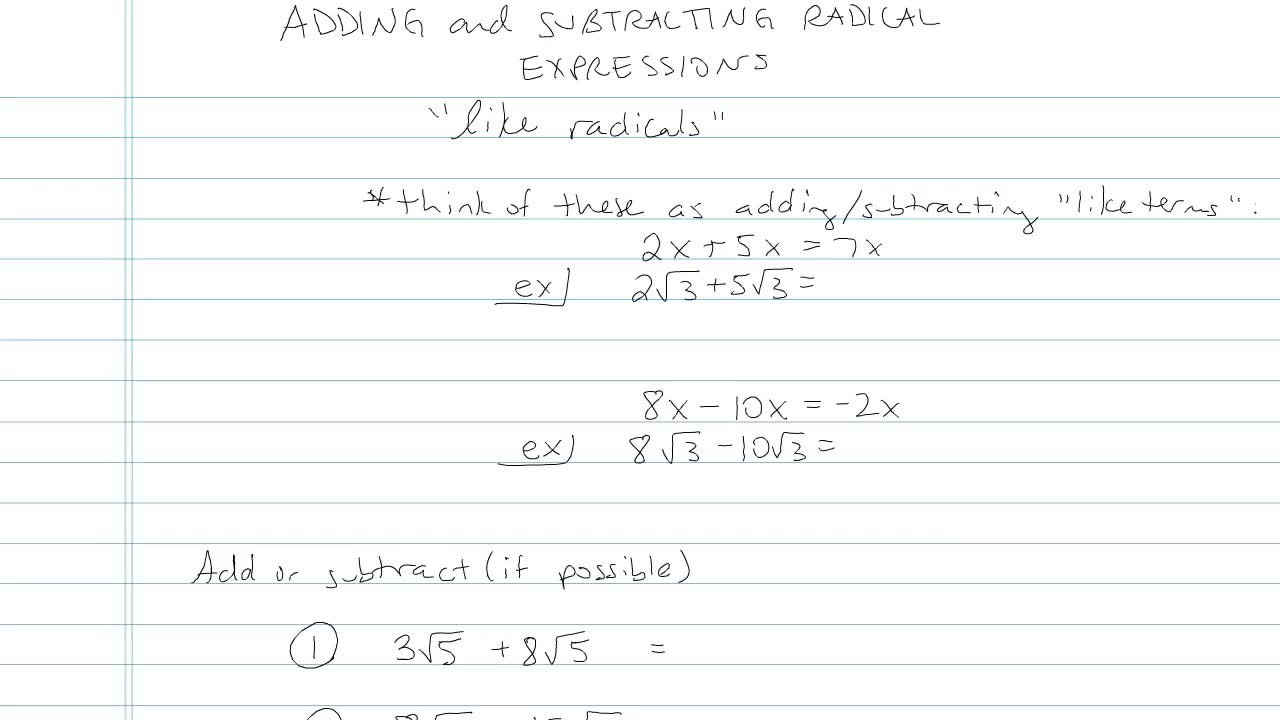 ADDING and SUBTRACTING RADICAL
EXPRESSIONS
"like radicals"
*think of these as adding/subtracting "like terms":
2x + 5x = 7x
ex) 2√3 + 5√3 =
8x - 10x = -2x
ex) 8√3 - 10√3 =
Add or subtract (if possible)
① 3√5 + 8√5 =